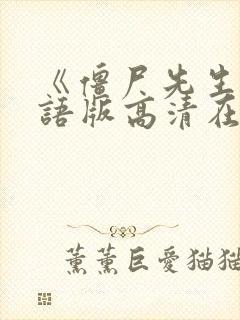 《僵尸先生
語版高清在
薰薰巨愛猫猫